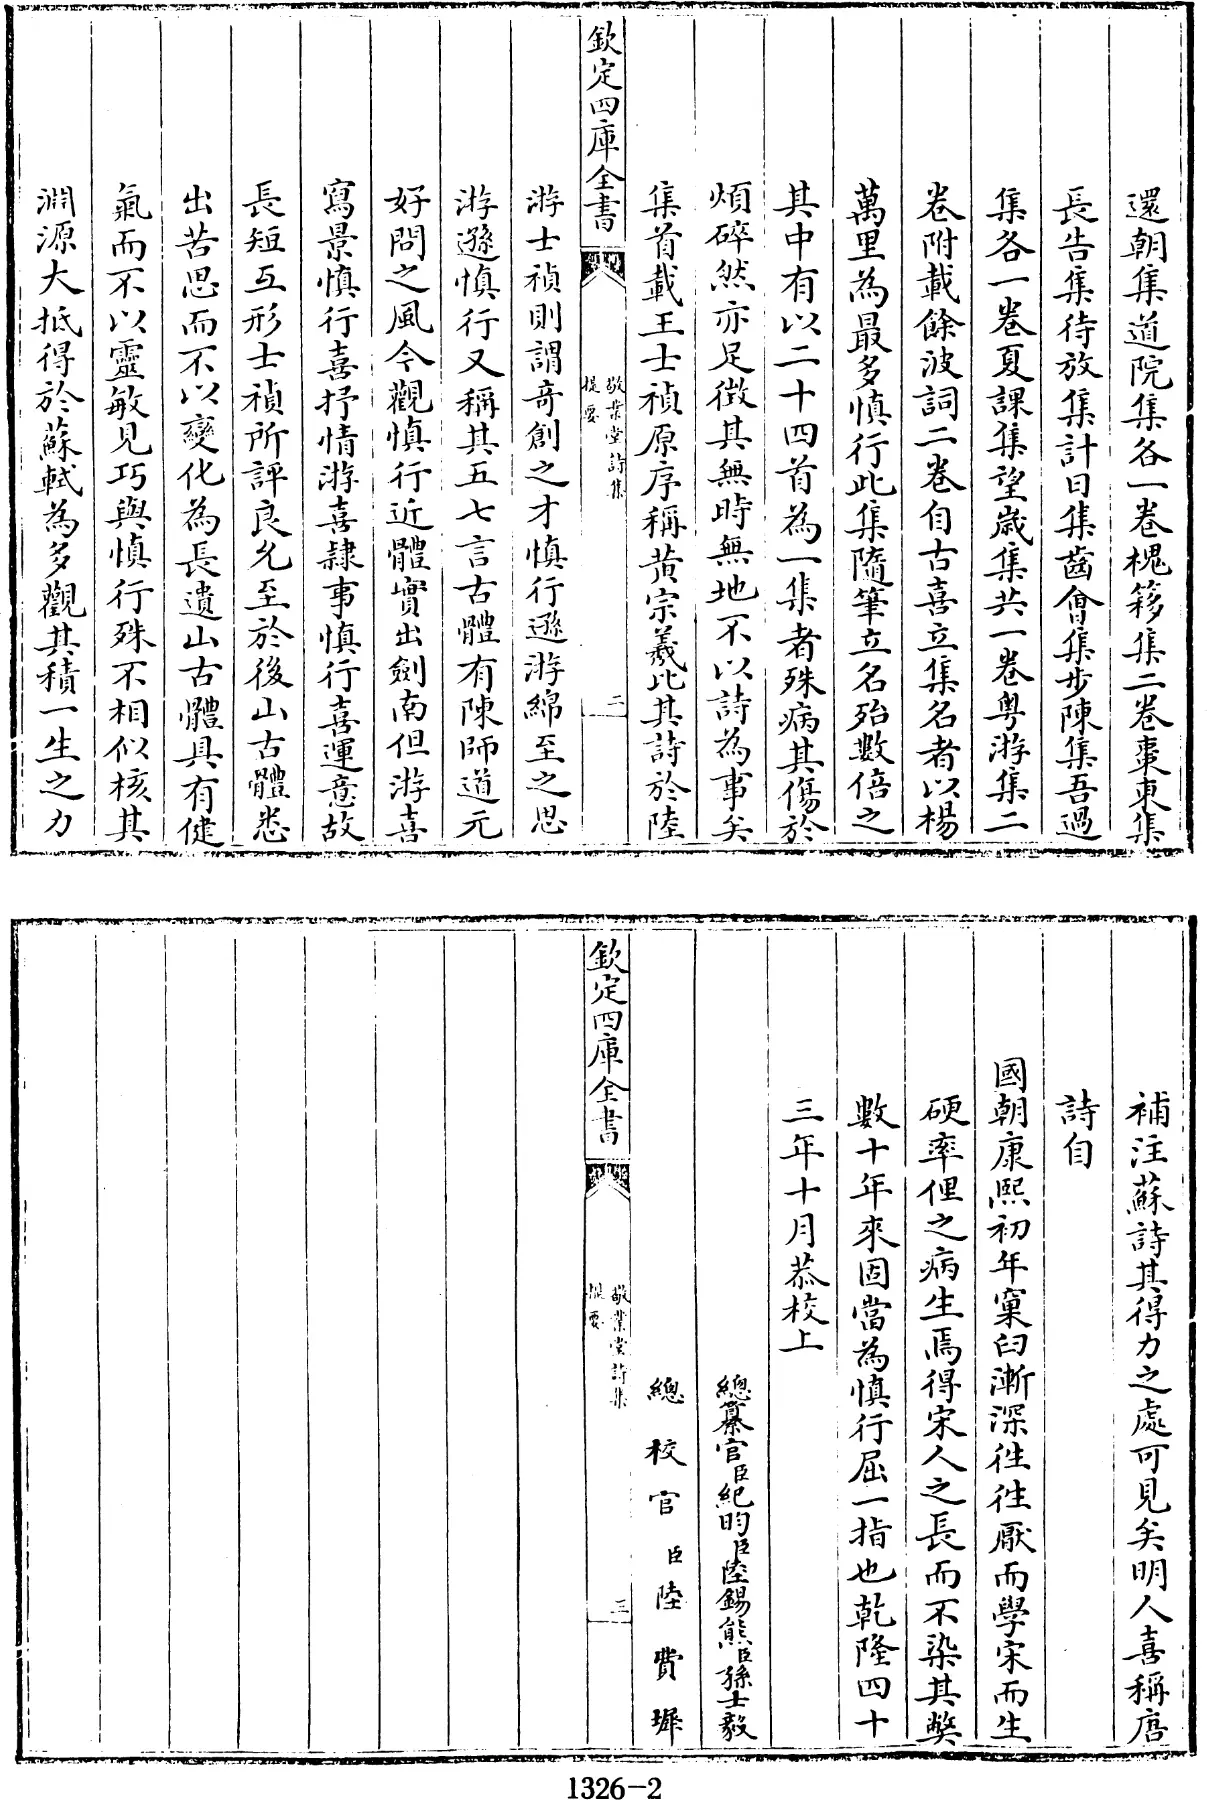 還朝集道院集各一卷槐簃集二卷棗東集
長告集待放集計日集齒會集步陳集吾過
集各一卷夏課集望歲集共一卷粤游集二
卷附載餘波詞二卷自古喜立集名者以楊
萬里為最多慎行此集隨筆立名殆數倍之
其中有以二十四首為一集者殊病其傷於
煩碎然亦足徴其無時無地不以詩為事矣
集首載王士禎原序稱黄宗羲比其詩於陸
欽定四庫全書
敬業堂詩集
提要
二
游士禎則謂奇創之才慎行遜游綿至之思
游遜慎行又稱其五七言古體有陳師道元
好問之風今觀慎行近體實出劍南但游喜
寫景慎行喜抒情游喜隸事慎行喜運意故
長短互形士禎所評良允至於後山古體悉
出苦思而不以變化為長遺山古體具有健
氣而不以靈敏見巧與慎行殊不相似核其
淵源大抵得於蘇軾為多觀其積一生之力
補注蘇詩其得力之處可見矣明人喜稱唐
詩自
國朝康熙初年窠臼漸深徃徃厭而學宋而生
硬率俚之病生焉得宋人之長而不染其獘
數十年來固當為慎行屈一指也乾隆四十
三年十月恭校上
總纂官臣紀昀臣陸錫熊臣孫士毅
總校官臣陸費墀
欽定四庫全書
敬業堂詩集
提要
三
1326-2